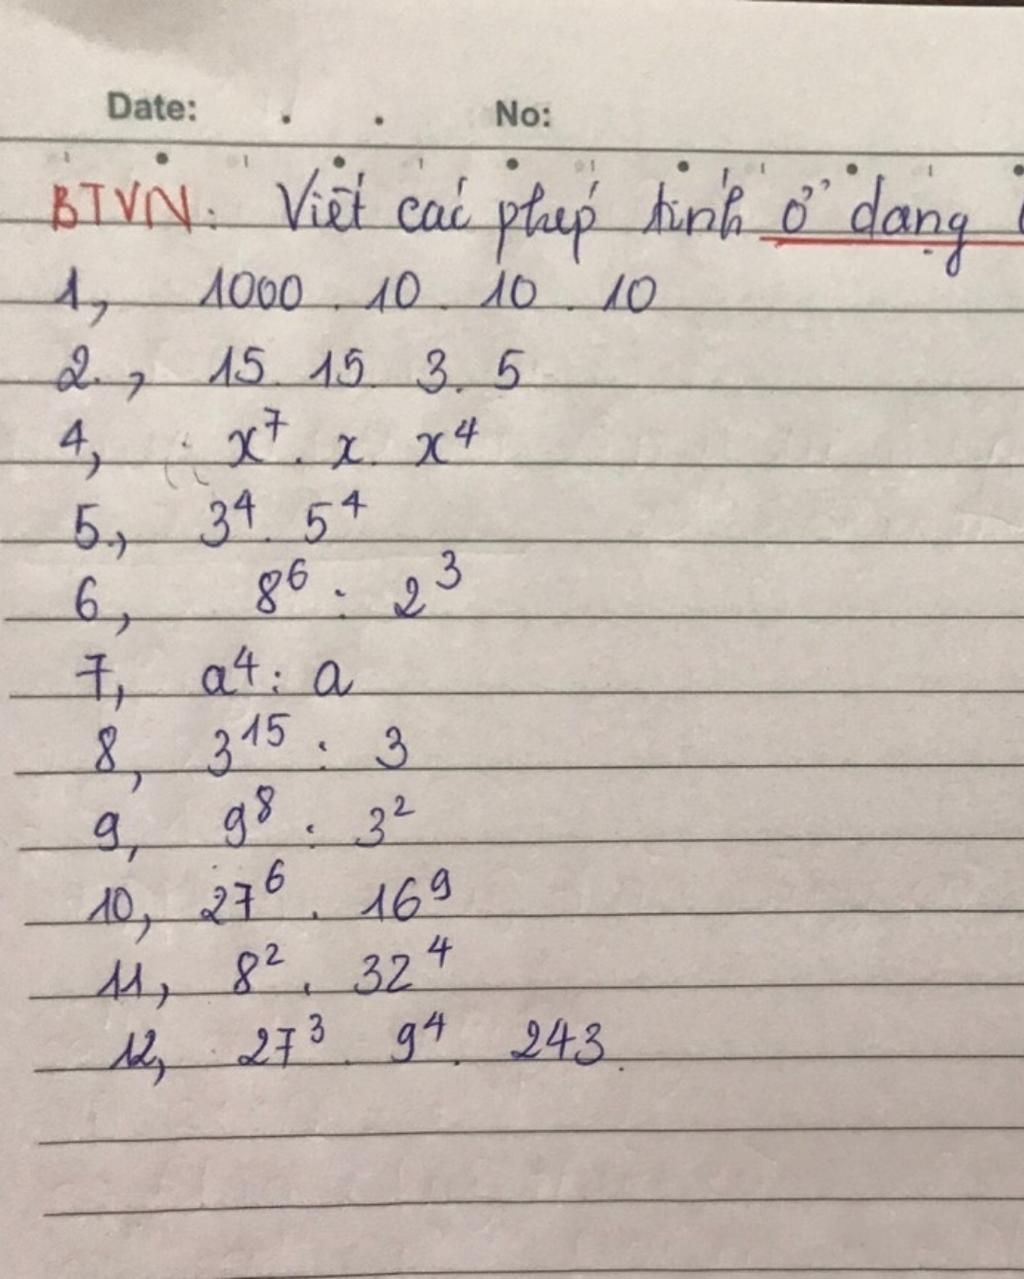 Date: . . No:
BTVN: Viết các phép tính ở dạng
1, 1000 . 10 . 10 . 10
2., 15 . 15 . 3 . 5
4, x⁷ . x . x⁴
5., 3⁴ . 5⁴
6, 8⁶ : 2³
7, a⁴ : a
8, 3¹⁵ : 3
9, 9⁸ : 3²
10, 27⁶ . 16⁹
11, 8² . 32⁴
12, 27³ . 9⁴ . 243